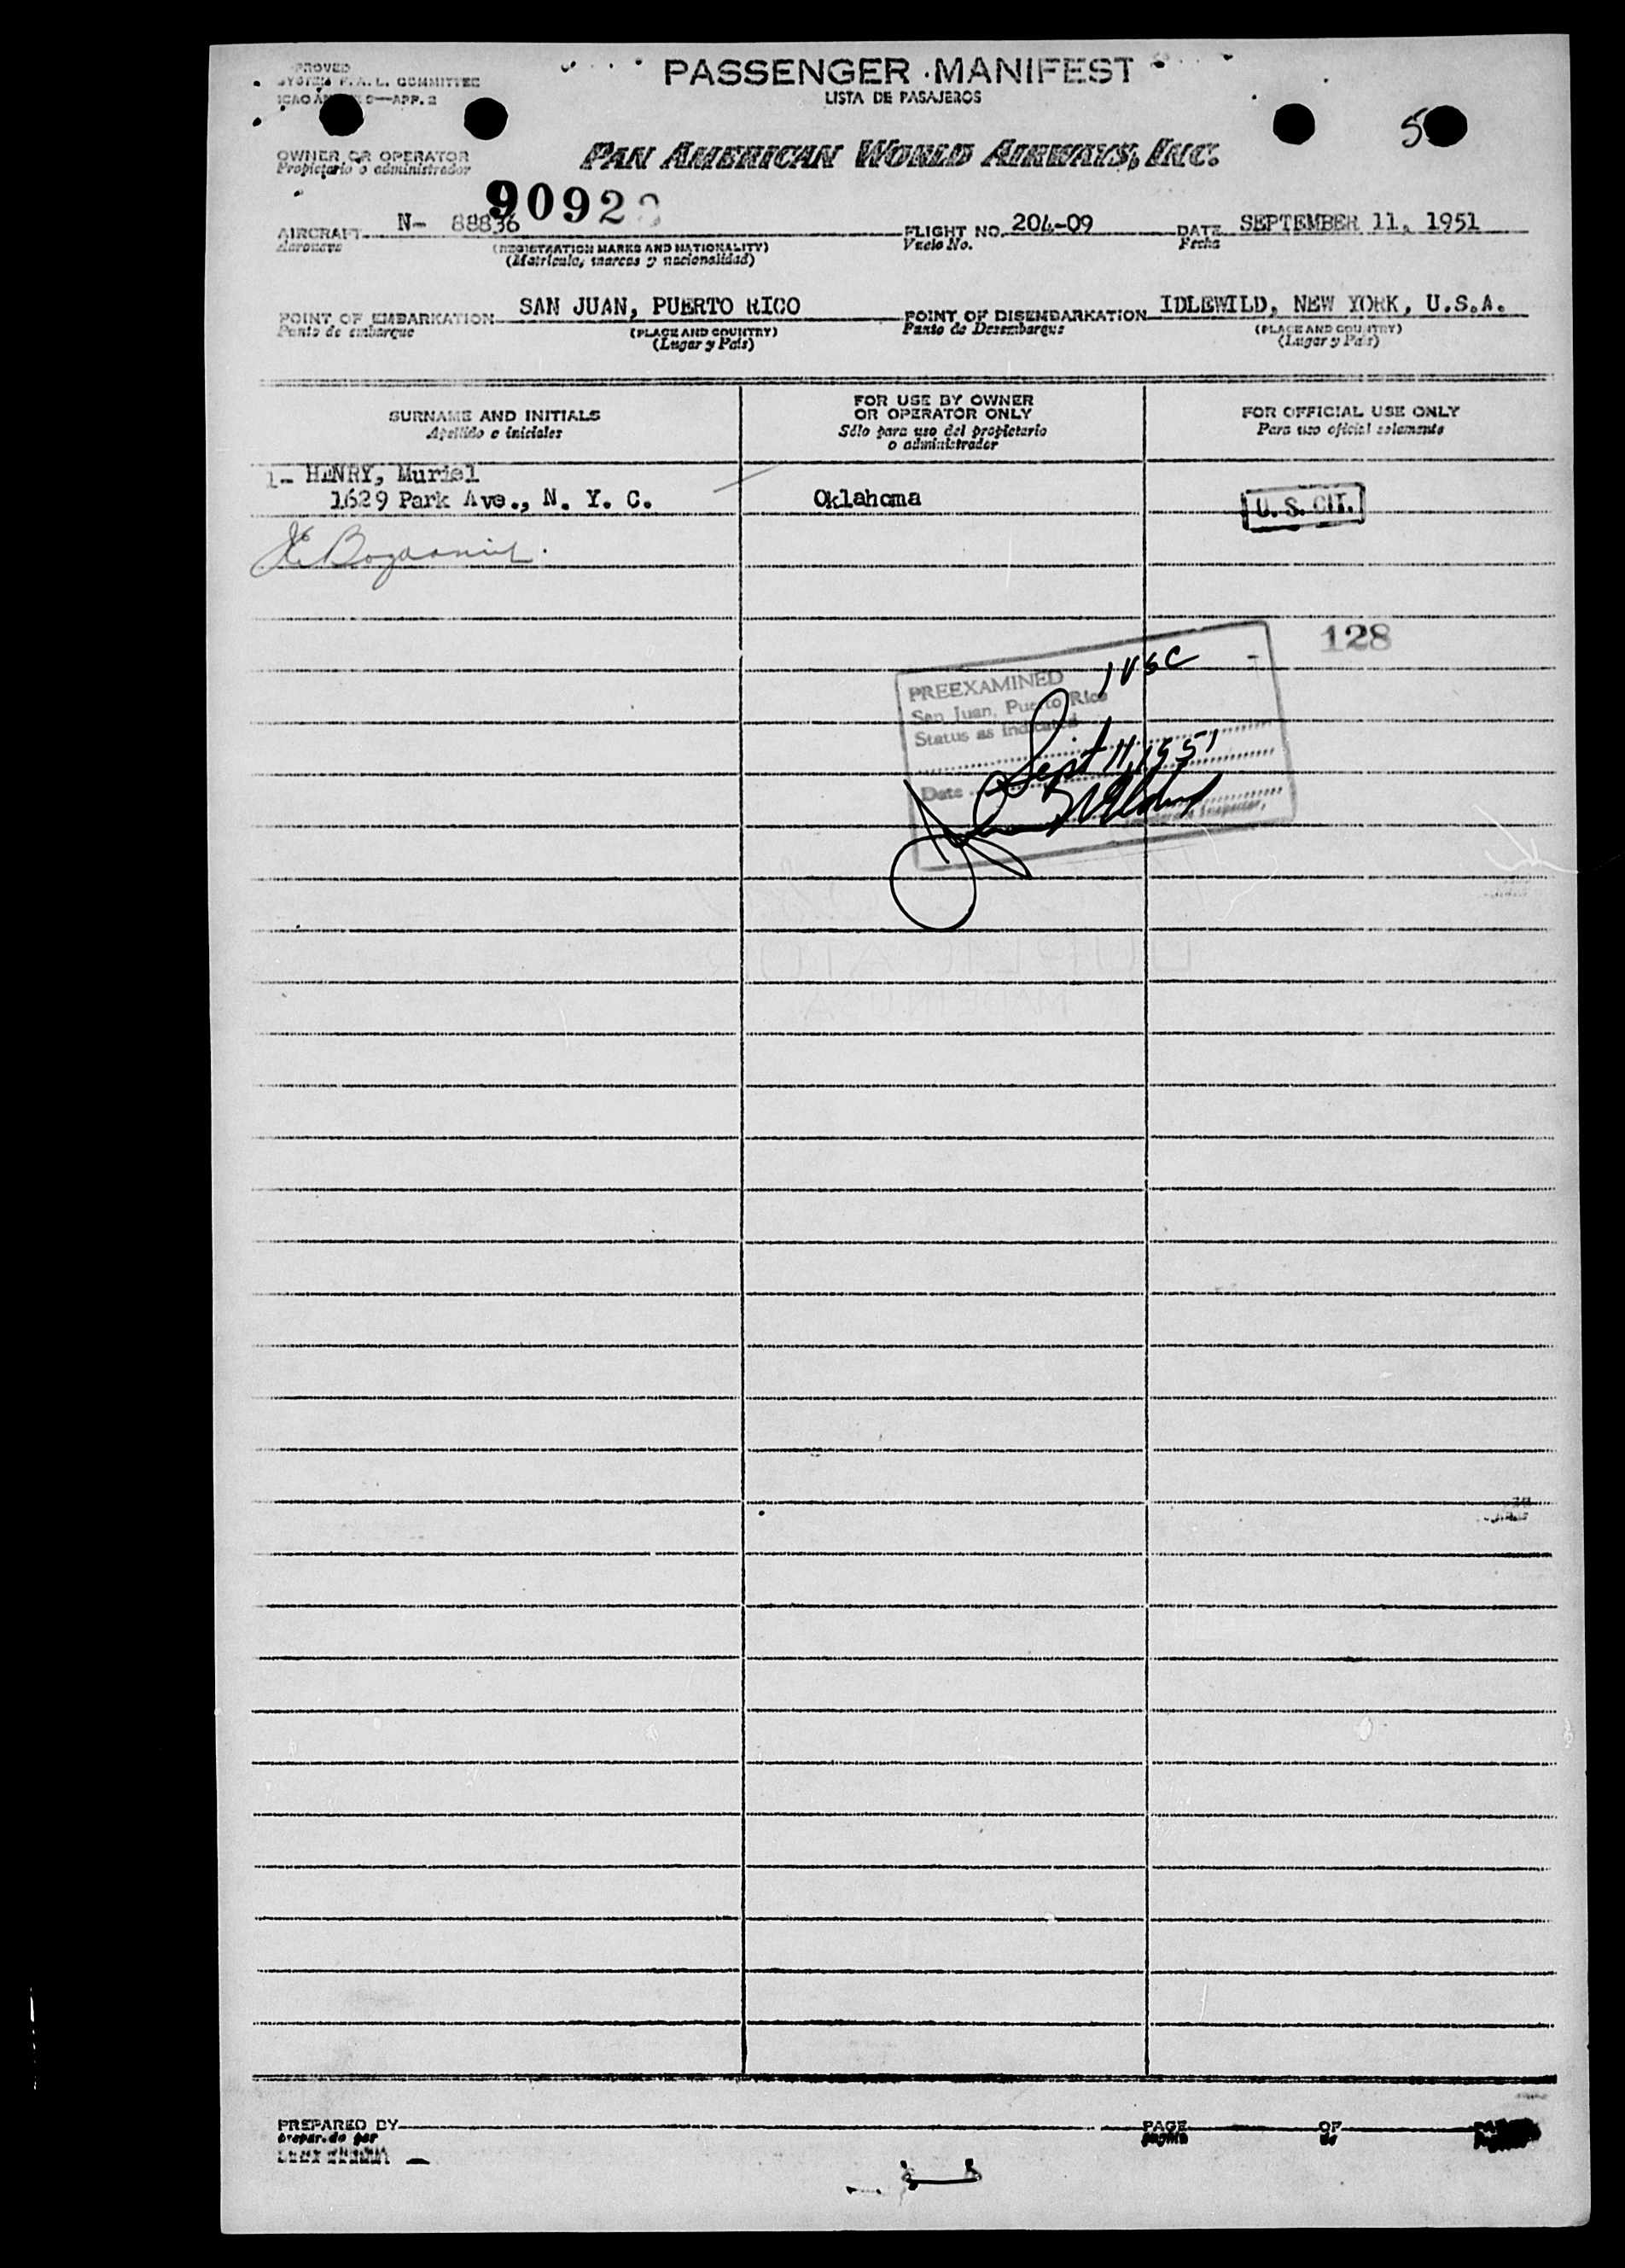 PASSENGER MANIFEST
LISTA DE PASAJEROS
SYSTEM F. A. L. COMMITTEE
5
OWNER OR OPERATOR
Propietario o administrador
PAN AMERICAN WORLD AIRWAYS, INC.
9092
AIRCRAFT N- 88836 FLIGHT NO. 204-09 DATE SEPTEMBER 11, 1951
Aeronave (REGISTRATION MARKS AND NATIONALITY) Vuelo No. Fecha
(Matricula, marcas y nacionalidad)
POINT OF EMBARKATION SAN JUAN, PUERTO RICO POINT OF DISEMBARKATION IDLEWILD, NEW YORK, U.S.A.
Punto de embarque (PLACE AND COUNTRY) Punto de Desembarque (PLACE AND COUNTRY)
(Lugar y País) (Lugar y País)
SURNAME AND INITIALS
Apellido e iniciales
FOR USE BY OWNER
OR OPERATOR ONLY
Sólo para uso del propietario
o administrador
FOR OFFICIAL USE ONLY
Para uso oficial solamente
1- HENRY, Muriel
1629 Park Ave., N. Y. C. Oklahoma U. S. CIT.
128
1 USC
PREEXAMINED
San Juan, Puerto Rico
Status as indicated
Date Sept 11, 1951
PREPARED BY PAGE OF